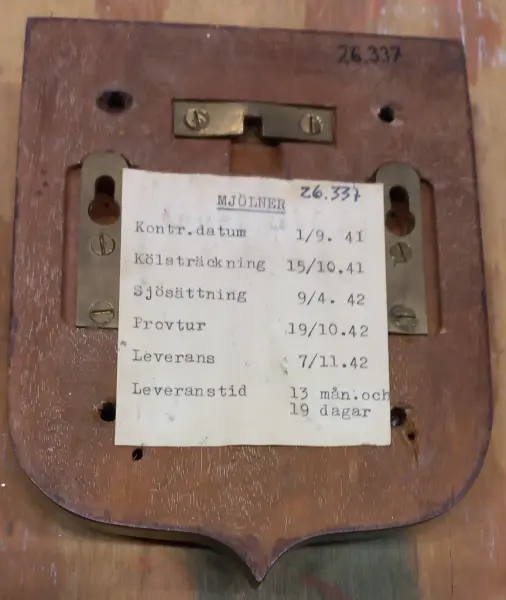 26.337
MJÖLNER 26.337
Kontr.datum 1/9. 41
Kölsträckning 15/10.41
Sjösättning 9/4. 42
Provtur 19/10.42
Leverans 7/11.42
Leveranstid 13 mån.och
19 dagar